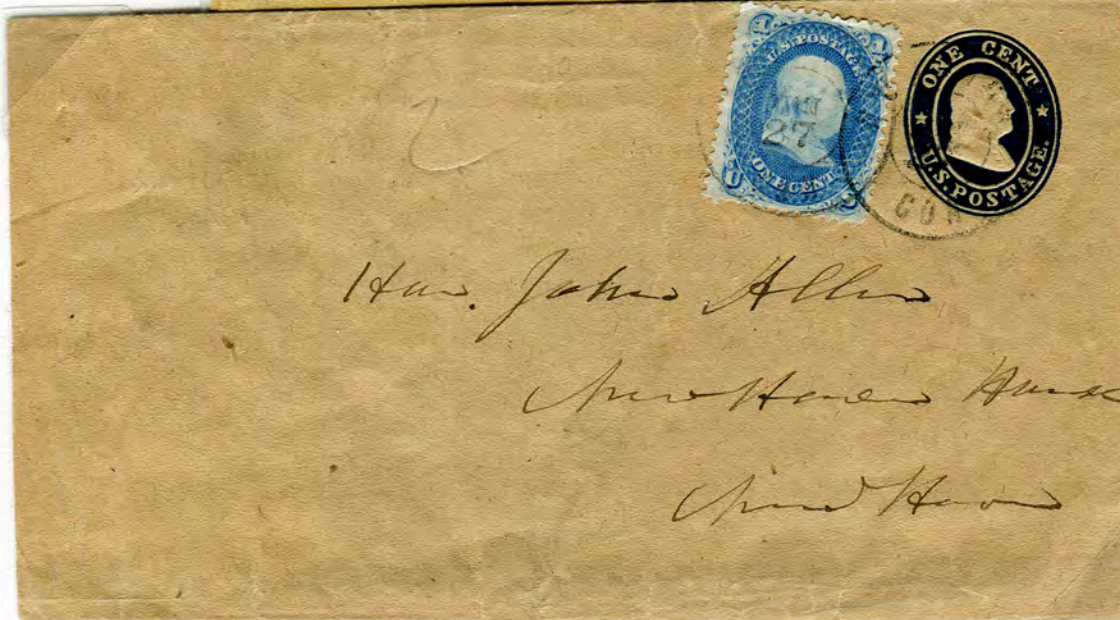 1 1
U.S. POSTAGE
27
ONE CENT
ONE CENT
U.S. POSTAGE.
CON
Hon. John Allen
New Haven House
New Haven